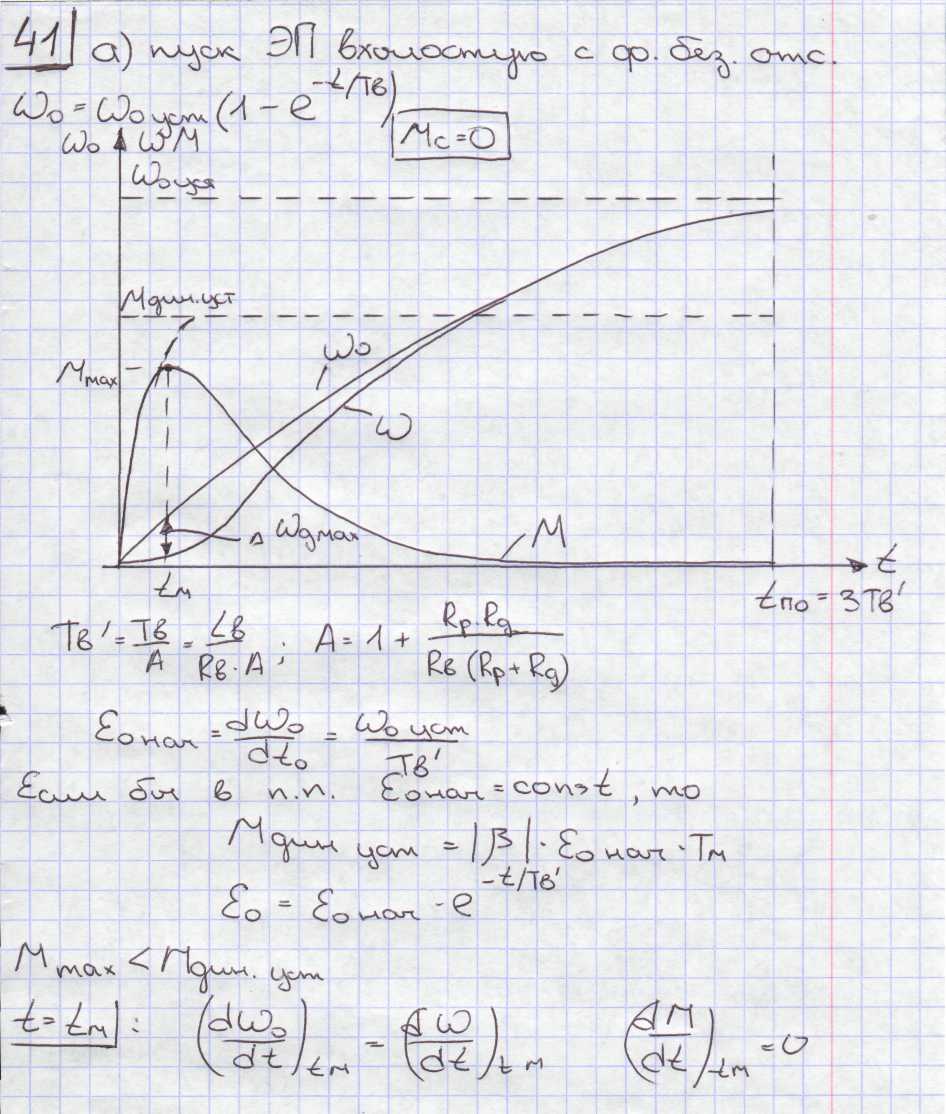 41 а) пуск ЭП вхолостую с ф. без. отс.
ω₀ = ω₀ уст (1 - e^(-t/Tв))
Mс = 0
ω₀ ω M
ω₀ уст
Mдин.уст
ω₀
Mmax
ω
Δωдmax
M
t
tм
tпо = 3Tв'
Tв' = Tв/A = Lв/(Rв·A) ; A = 1 + Rр·Rд/(Rв(Rр+Rд))
ε₀ нач = dω₀/dt₀ = ω₀ уст/Tв'
Если бы в п.п. ε₀ нач = const, то
M дин уст = |β|·ε₀ нач·Tм
ε₀ = ε₀ нач · e^(-t/Tв')
M max < Mдин. уст
t = tм : (dω₀/dt)tм = (dω/dt)tм (dM/dt)tм = 0